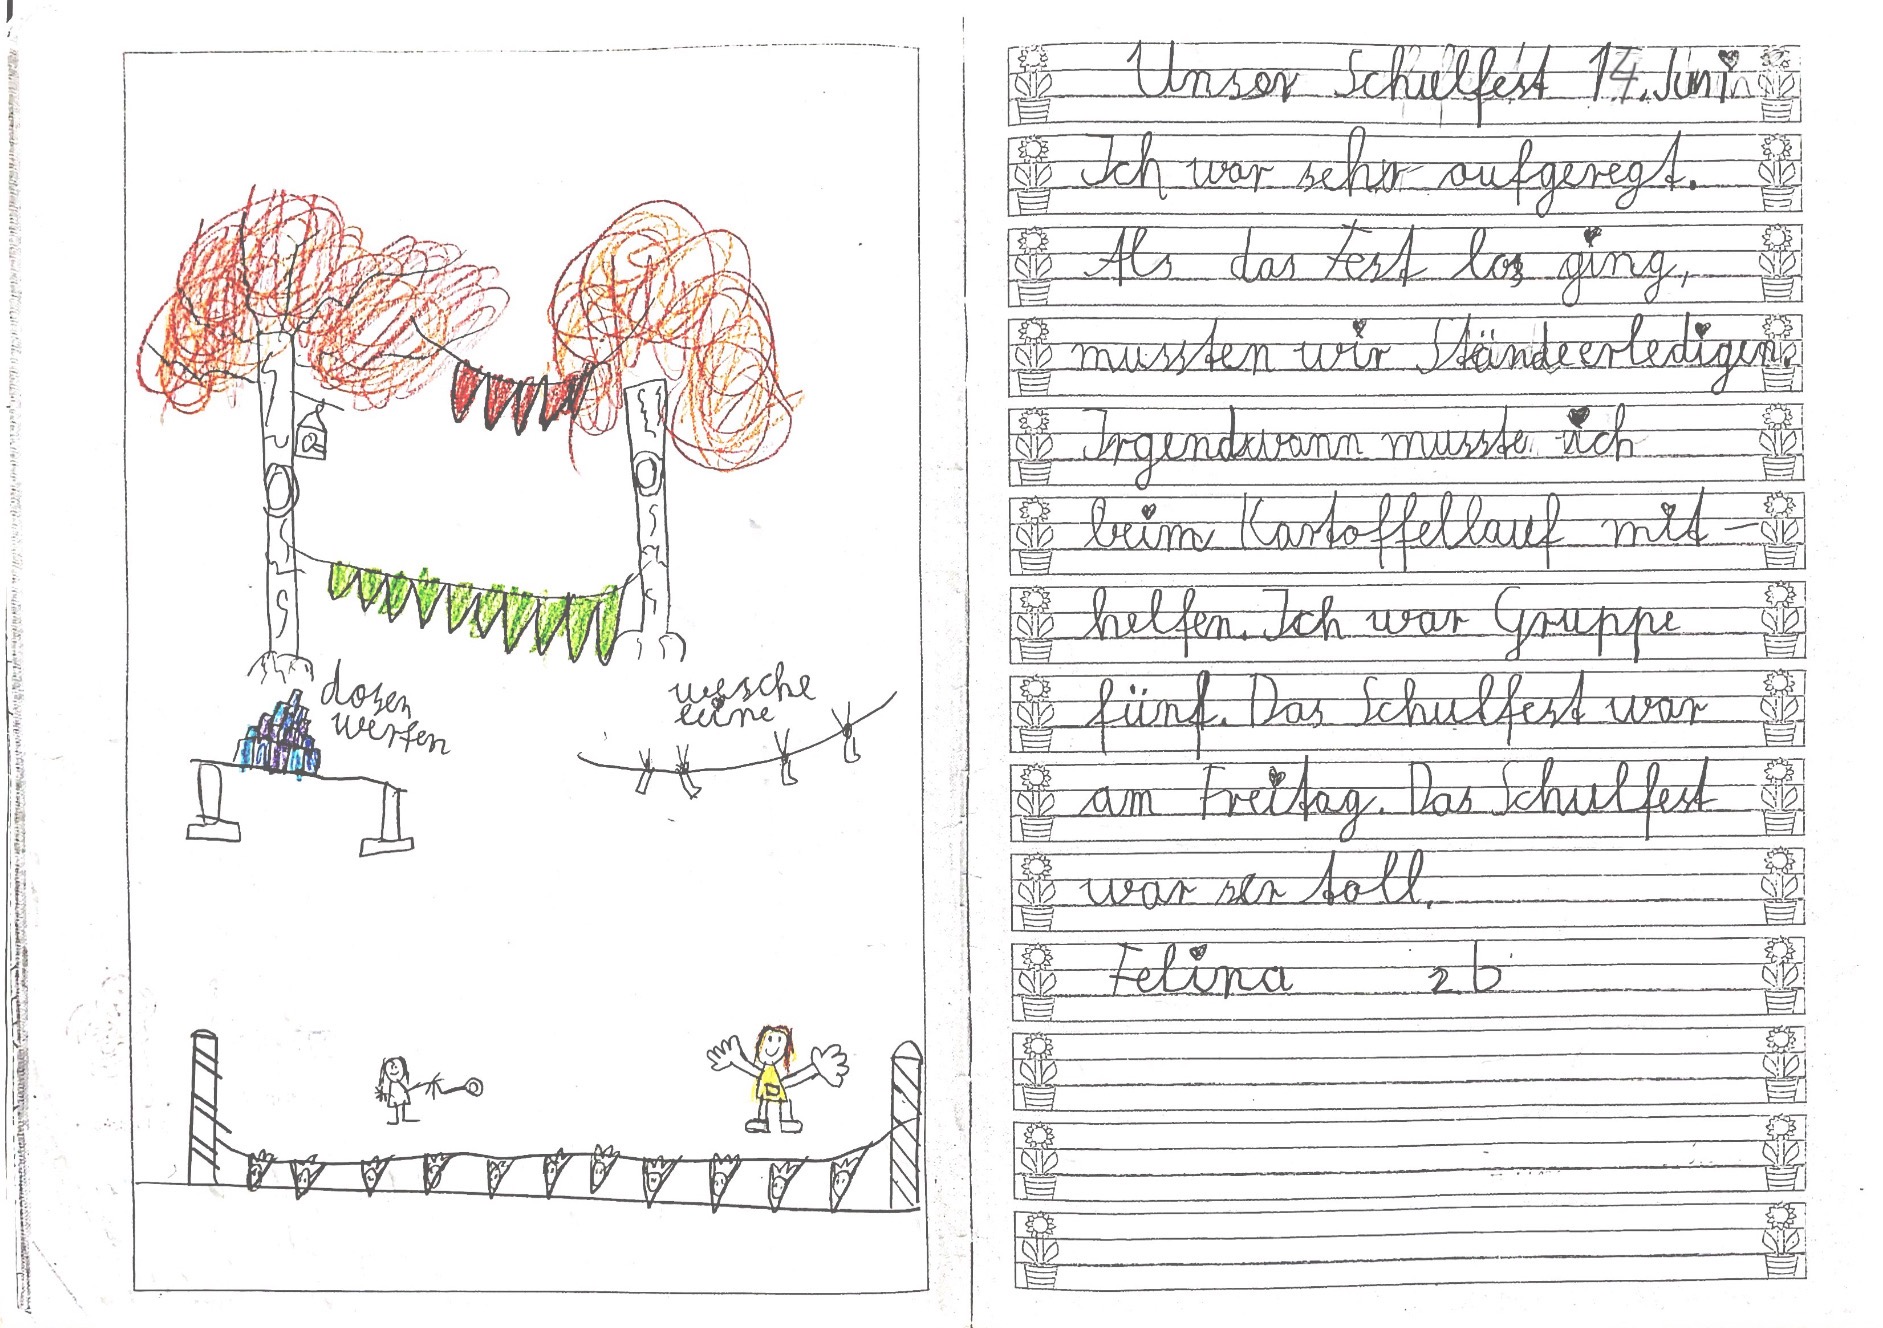 dosen
werfen
wesche
leine
Unser Schulfest 14. Juni
Ich war sehr aufgeregt.
Als das Fest los ging,
mussten wir Stände erledigen.
Irgendwann musste ich
beim Kartoffellauf mit-
helfen. Ich war Gruppe
fünf. Das Schulfest war
am Freitag. Das Schulfest
war ser toll.
Felina 2b